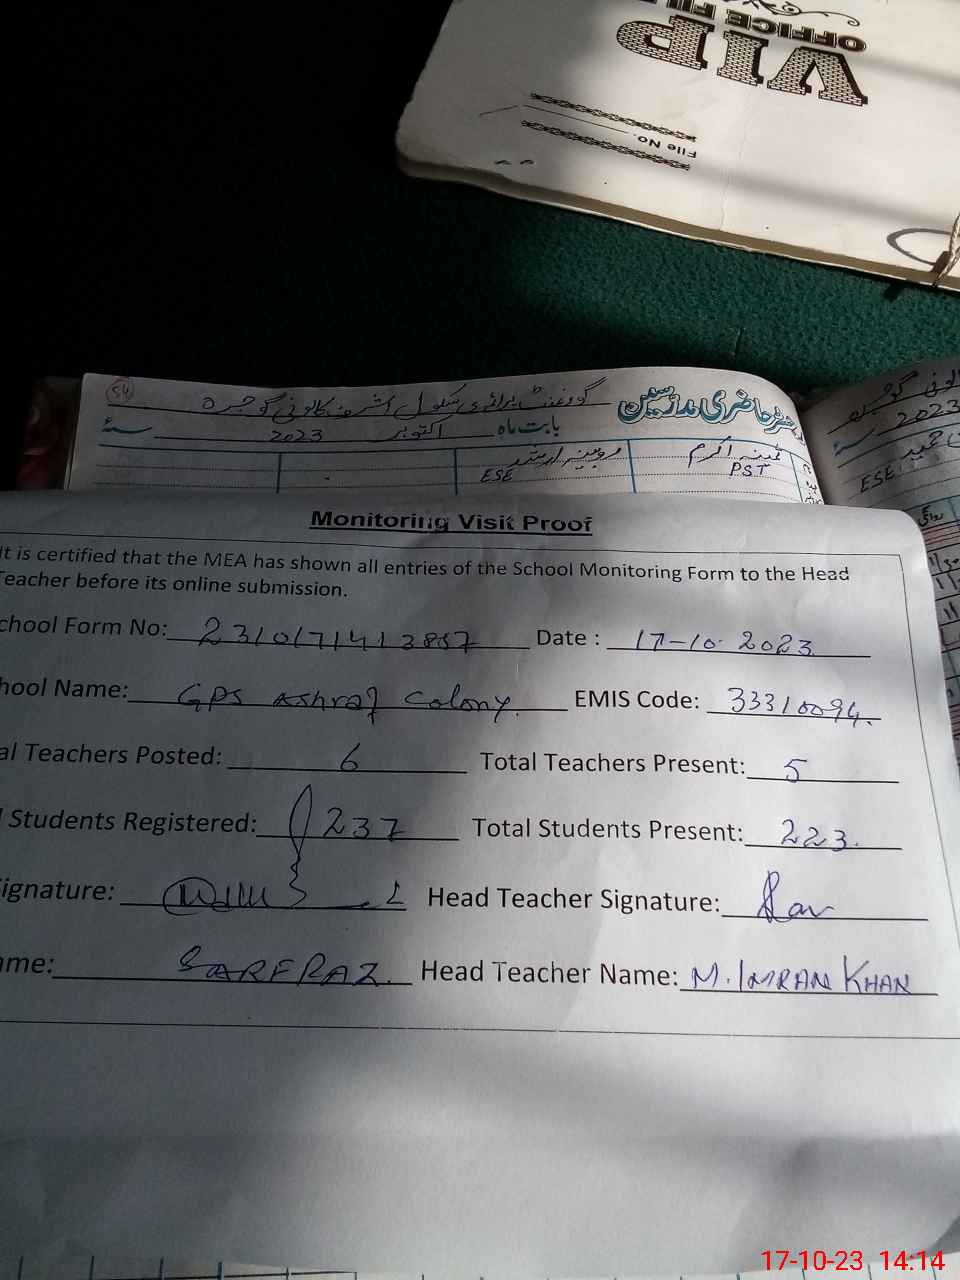 VIP
OFFICE FI
File No.
54
رجسٹر حاضری مدرسین گورنمنٹ پرائمری سکول اشرف کالونی گوجرہ
بابت ماہ اکتوبر 2023
ثمینہ اکرم روبینہ ارشد
PST ESE
2023
ESE
Monitoring Visit Proof
It is certified that the MEA has shown all entries of the School Monitoring Form to the Head
Teacher before its online submission.
chool Form No: 2310171413857 Date : 17-10-2023
hool Name: GPS Ashraf Colony. EMIS Code: 33310094.
al Teachers Posted: 6 Total Teachers Present: 5
l Students Registered: 237 Total Students Present: 223.
ignature: Head Teacher Signature:
ame: SARFRAZ. Head Teacher Name: M. IMRAN KHAN
17-10-23 14:14